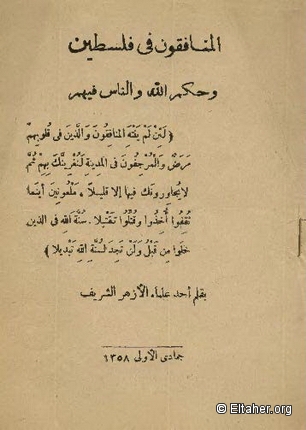 المنافقون فى فلسطين
وحكم الله والناس فيهم
﴿ لَئِنْ لَمْ يَنْتَهِ المنافِقُونَ وَالَّذِينَ فى قُلوبِهِمْ
مَرَضٌ وَالْمُرْجِفُونَ فى المدِينَةِ لَنُغْرِيَنَّكَ بِهِمْ ثُمَّ
لا يُجاوِرُونَكَ فيها إلا قليلًا ، مَلْعُونِينَ أينَما
ثُقِفُوا أُخِذُوا وَقُتِّلُوا تَقْتِيلا . سُنَّةَ اللهِ فى الذين
خَلَوْا مِن قَبْلُ وَلَنْ تَجِدَ لِسُنَّةِ اللهِ تَبْدِيلا ﴾
بقلم أحد علماء الأزهر الشريف
جمادى الأولى ١٣٥٨
© Eltaher.org